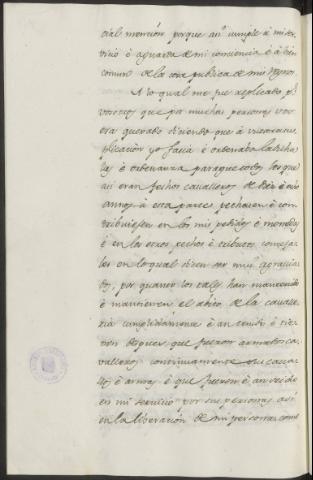 cial mencion porque ansi cumple á mi ser
vicio é aguarda de mi conciencia é á bien
comun de la cosa publica de mis Reynos.
A lo qual me fue replicado p.r
vosotros que por muchas personas vos
era querado diciendo que é vuestra su
plicacion yo facia é ordenaba la dicha
ley é ordenanza para que todos los que
asi eran fechos cavalleros de diez é seis
annos á esta parte pechasen é con
tribuyesen en los mis pedidos é monedas
é en los otros pechos é tributos conceja
les en lo qual dicen ser muy agravia
dos, por quanto los tales han mantenido
é mantienen el abito de la cavalle
ria cumplidamente é an tenido é tie
nen despues que fueron armados ca
valleros continuamente sus caballos
é armas é que fueron é an veido
en mi servicio por sus personas asi
en la liberacion de mi persona como